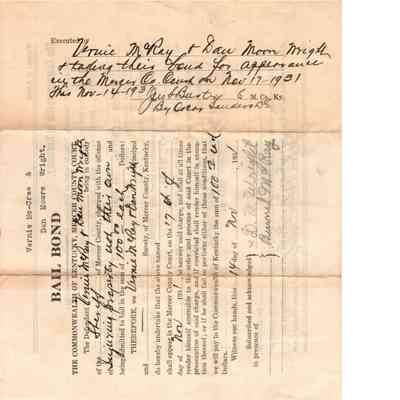 Executed by
Vernie McRay & Dan Moon Wright
& taking their bond for appearance
in the Mercer Co. Court on Nov 17-1931
This Nov-14-193
M. Co. Ky.
By Oscar Sanders D.S.
Vernie Mc-Crae &
Dan Moore Wright.
BAIL BOND
THE COMMONWEALTH OF KENTUCKY, MERCER COUNTY COURT
The Defendant Vernie McRay & Dan Moon Wright being in custody
of the of Mercer County, charged with the offense
and
being admitted to bail in the sum of 100.00 each Dollars:
THEREFORE, we Vernie McRay & Dan Wright, Principal
and Surety, of Mercer County, Kentucky,
do hereby undertake that the above named
shall appear in the Mercer County Court, on the 17th of
day of Nov 1931 to answer said charge, and shall at all times
render himself amenable to the order and process of said Court in the
prosecution of said charge, and if convicted shall render himself in execu-
tion thereof; or if he shall fail to perform either of these conditions, that
we will pay to the Commonwealth of Kentucky the sum of 100.00 each
Dollars.
Witness our hands, this 14 day of Nov, 1931
Subscribed and acknowledged
in presence of